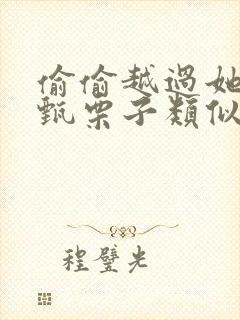 偷偷越過她
甄栗子類似
程璧光